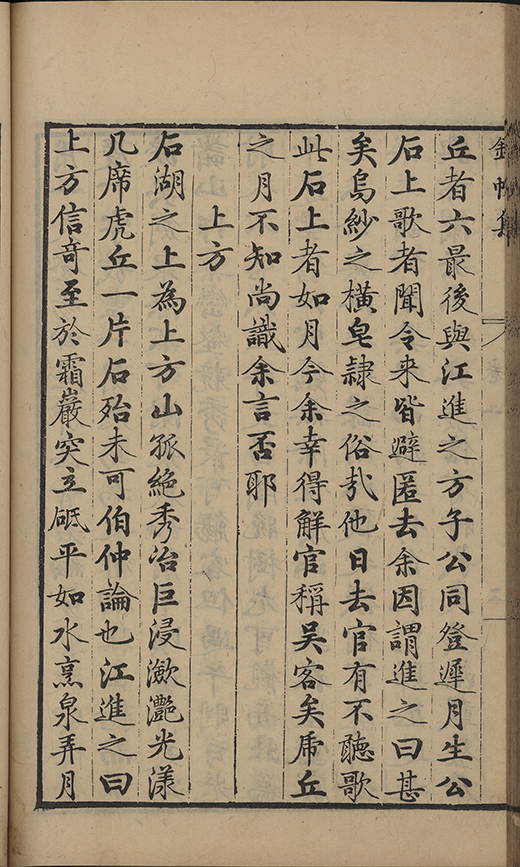 錦帆集
丘者六最後與江進之方子公同登遲月生公
石上歌者聞令来皆避匿去余因謂進之曰甚
矣烏紗之横皂隷之俗㢤他日去官有不聽歌
此石上者如月今余幸得解官稱吳客矣虎丘
之月不知尚識余言否耶
上方
石湖之上為上方山孤絶秀冶巨浸瀲灧光漾
几席虎丘一片石殆未可伯仲論也江進之曰
上方信竒至於霜巖突立砥平如水烹泉弄月